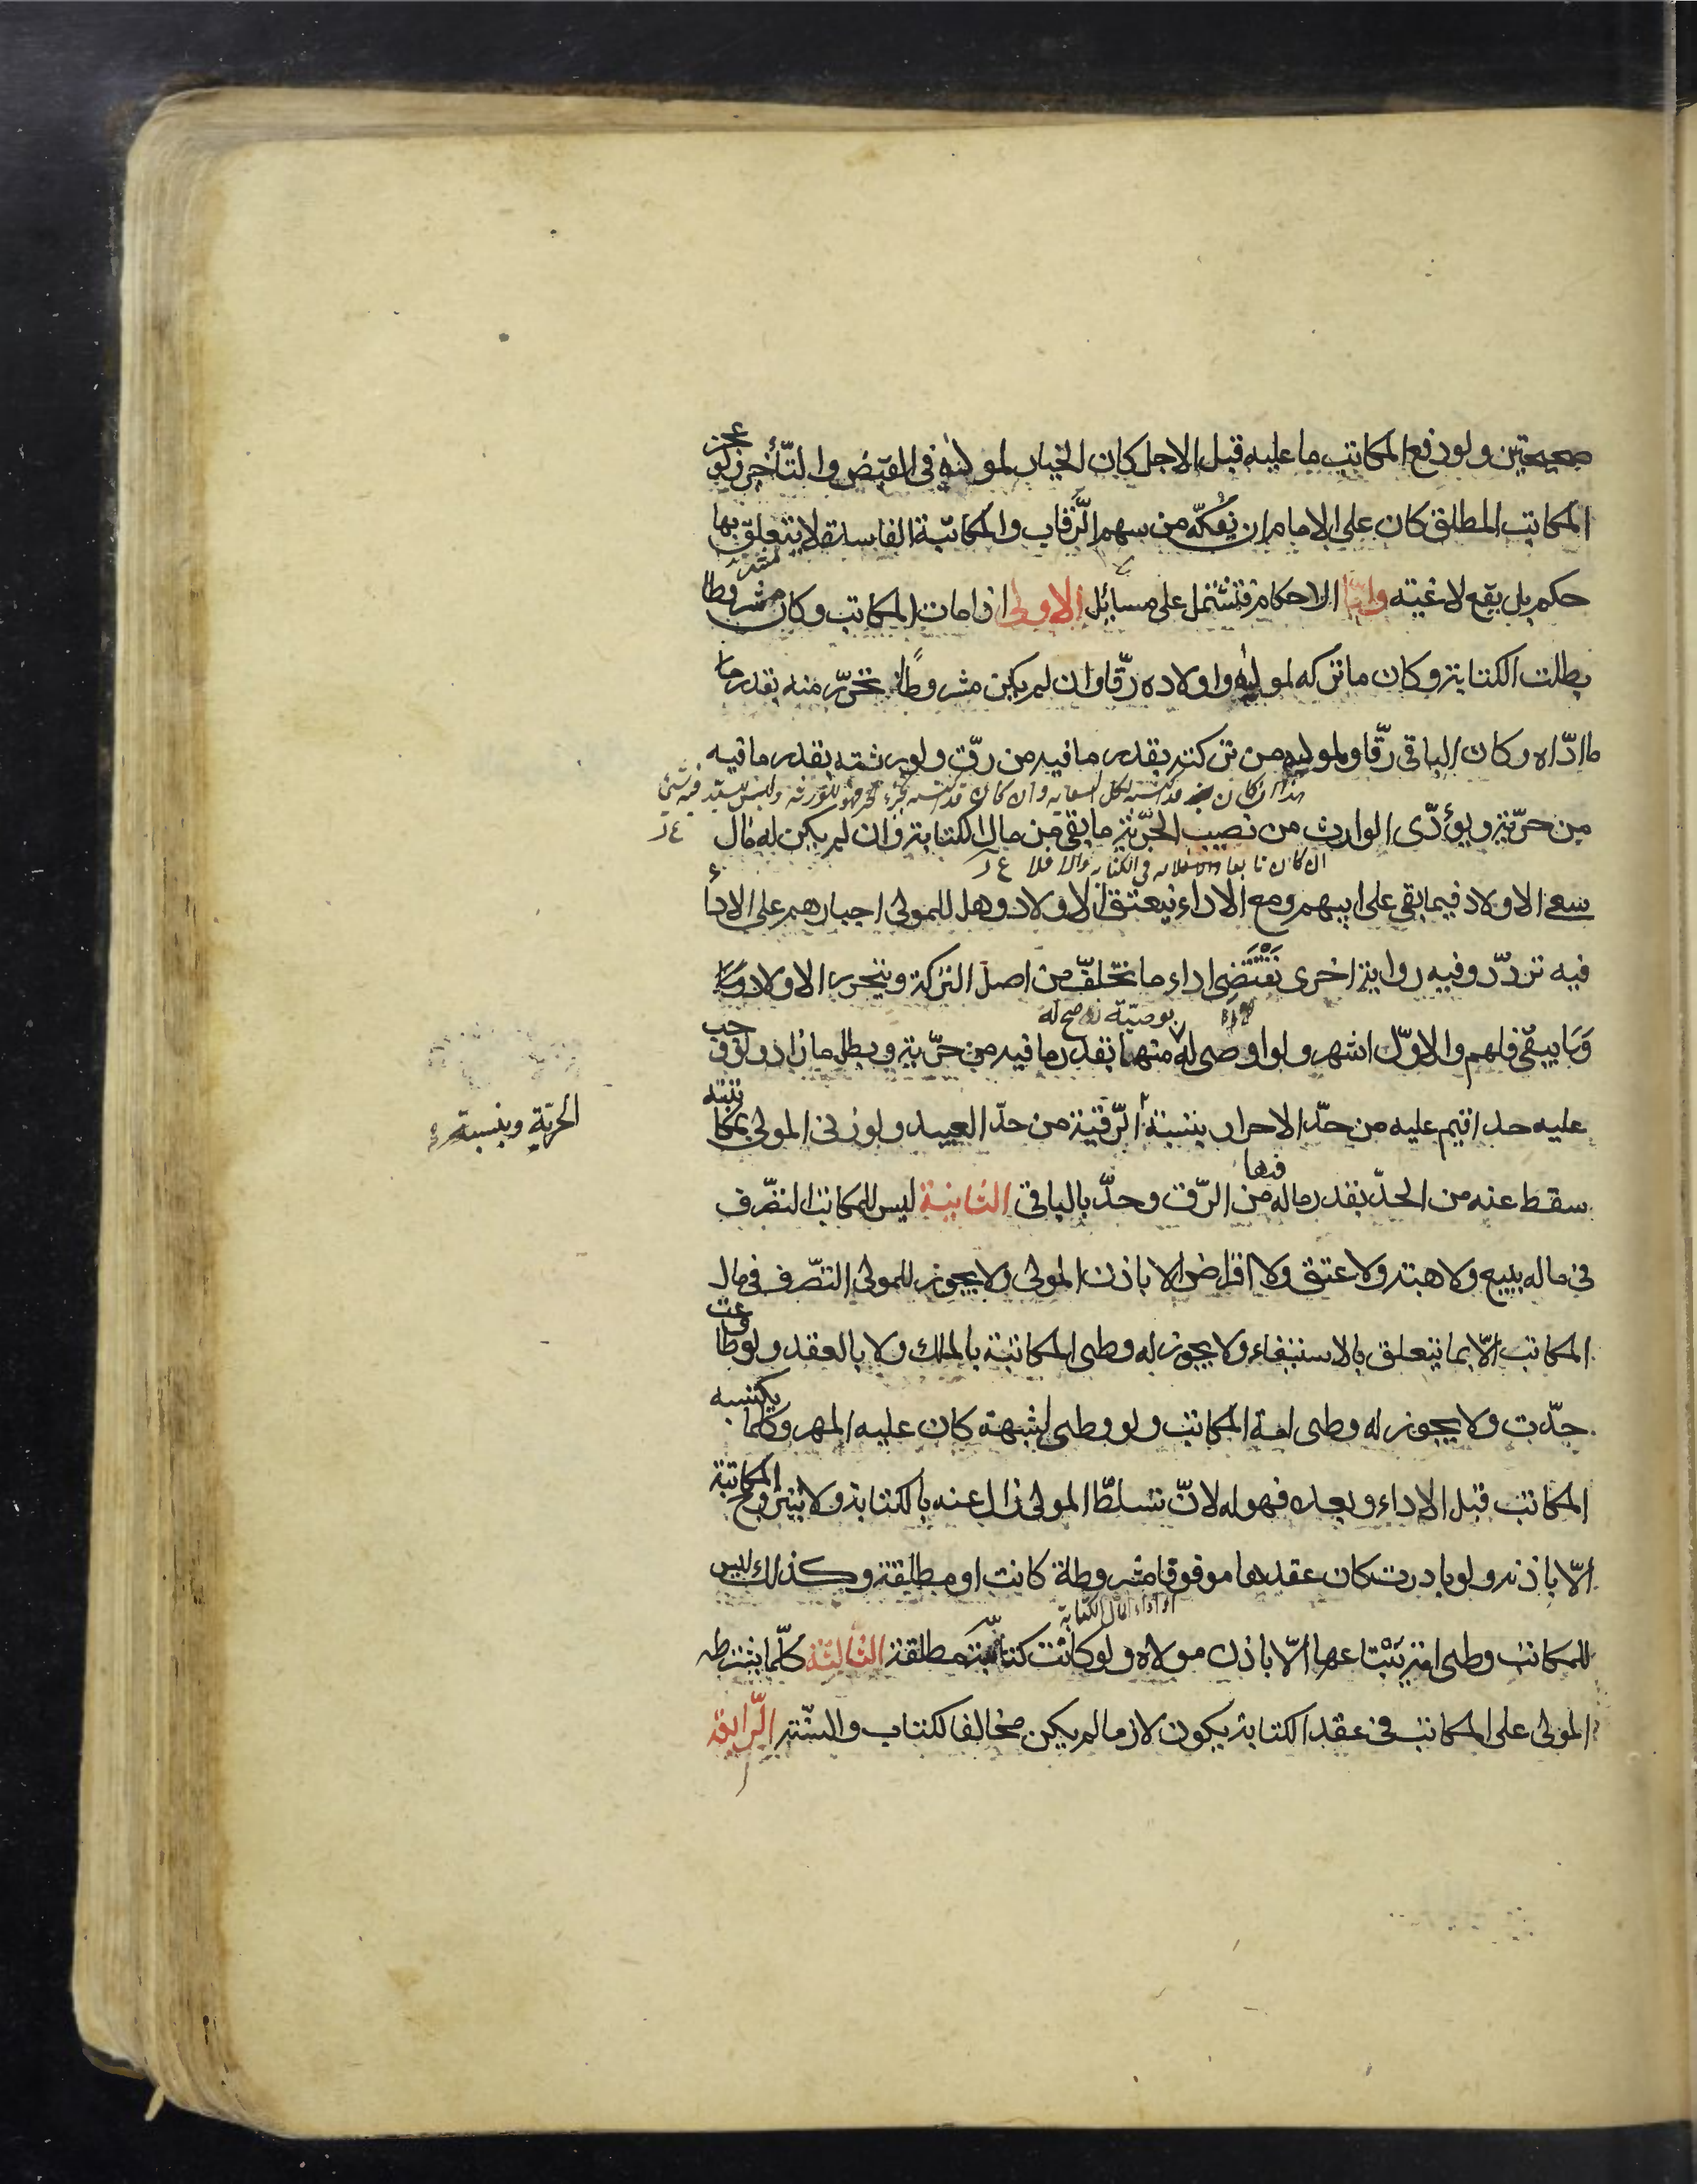 صحيحتين ولو دفع المكاتب ما عليه قبل الاجل كان الخيار لمولاه في القبض والتأخير ولو عجز
المكاتب المطلق كان على الامام ان يفكّه من سهم الرّقاب والمكاتبة الفاسدة لا يتعلق بها
حكم بل يقع لاغية وامّا الاحكام فتشتمل على مسائل الاولى اذا مات المكاتب وكان مشروطا
بطلت الكتابة وكان ما تركه لموليه واولاده رقّا وان لم يكن مشروطًا تحرّر منه بقدر ما
ادّاه وكان الباقي رقّا ولموليه من تركته بقدر ما فيه من رقّ ولورثته بقدر ما فيه
هذا ان كان قد اكتسبه لكل السعاية وان كان قد اكتسبه بجزء الحر فهو للورثة وليس للسيد فيه شيء
من حرّية ويؤدّى الوارث من نصيب الحرّية ما بقي من مال الكتابة وان لم يكن له مال
ان كان تابعا له في الكتابة والا فلا
سعى الاولاد فيما بقي على ابيهم ومع الاداء ينعتق الاولاد وهل للمولى اجبارهم على الاداء
فيه تردّد وفيه رواية اخرى تقتضى اداء ما تخلّف من اصل التركة ويتحرر الاولاد وما
وما يبقى فلهم والاوّل اشهر ولو اوصى له بوصيّة صح له منها بقدر ما فيه من حرّية وبطل ما زاد ولو وجب
عليه حد اقيم عليه من حدّ الاحرار بنسبة الرّقية من حدّ العبيد ولو زنى المولى بمكاتبته
الحرّية وبنسبة
سقط عنه من الحدّ بقدر ماله فيها من الرّق وحدّ بالباقي الثانية ليس للمكاتب التصّرف
في ماله ببيع ولا هبة ولا عتق ولا اقراض الا باذن المولى ولا يجوز للمولى التصّرف في مال
المكاتب الّا بما يتعلق بالاستيفاء ولا يجوز له وطى المكاتبة بالملك ولا بالعقد ولو طاوعت
حدّت ولا يجوز له وطى امة المكاتب ولو وطى لشبهة كان عليه المهر وكلما يكتسبه
المكاتب قبل الاداء وبعده فهو له لانّ تسلّط المولى زال عنه بالكتابة ولا يتزوج المكاتبة
الّا باذنه ولو بادرت كان عقدها موقوفا مشروطة كانت او مطلقة وكذلك ليس
للمكاتب وطى امة يبتاعها الّا باذن مولاه ولو كانت كتابته مطلقة الثالثة كلّما يشترطه
المولى على المكاتب في عقد الكتابة يكون لازما ما لم يكن مخالفا لكتاب والسّنة الرّابعة